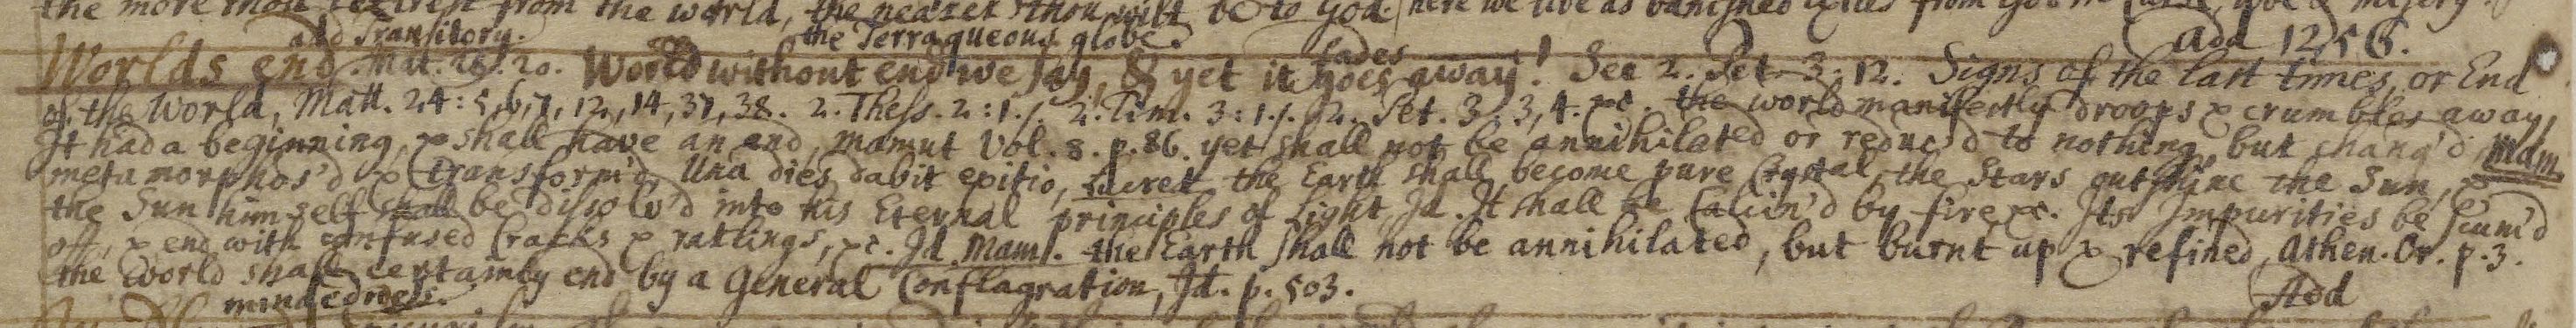 the more thou retirest from the world, the nearer thou wilt be to God. here we live as banished exiles from God
and Transitory. the Terraqueous globe. Add 1256.
Worlds end. Mat. 28. 20. World without end we say, & yet it goes fades away! See 2. Pet. 3. 12. Signs of the last times, or End
of the World, Matt. 24: 5, 6, 7, 12, 14, 37, 38. 2. Thess. 2: 1. /. 2. Tim. 3: 1. /. 2. Pet. 3. 3, 4. &c. the world manifestly droops & crumbles away,
It had a beginning, & shall have an end, Manut Vol. 8. p. 86. yet shall not be annihilated or reduc'd to nothing, but chang'd,
metamorphos'd & transform'd, Una dies dabit exitio, Lucret. the Earth shall become pure Crystal, the Stars outshine the Sun, & Mam.
the Sun himself shall be dissolv'd into his Eternal principles of Light, Id. It shall be Calcin'd by fire &c. Its Impurities be scum'd
off, & end with confused Cracks & ratlings, &c. Id. Mam. /. the Earth shall not be annihilated, but burnt up & refined, Athen. Or. p. 3.
the World shall certainly end by a General Conflagration, Id. p. 503. Add
mindedness.